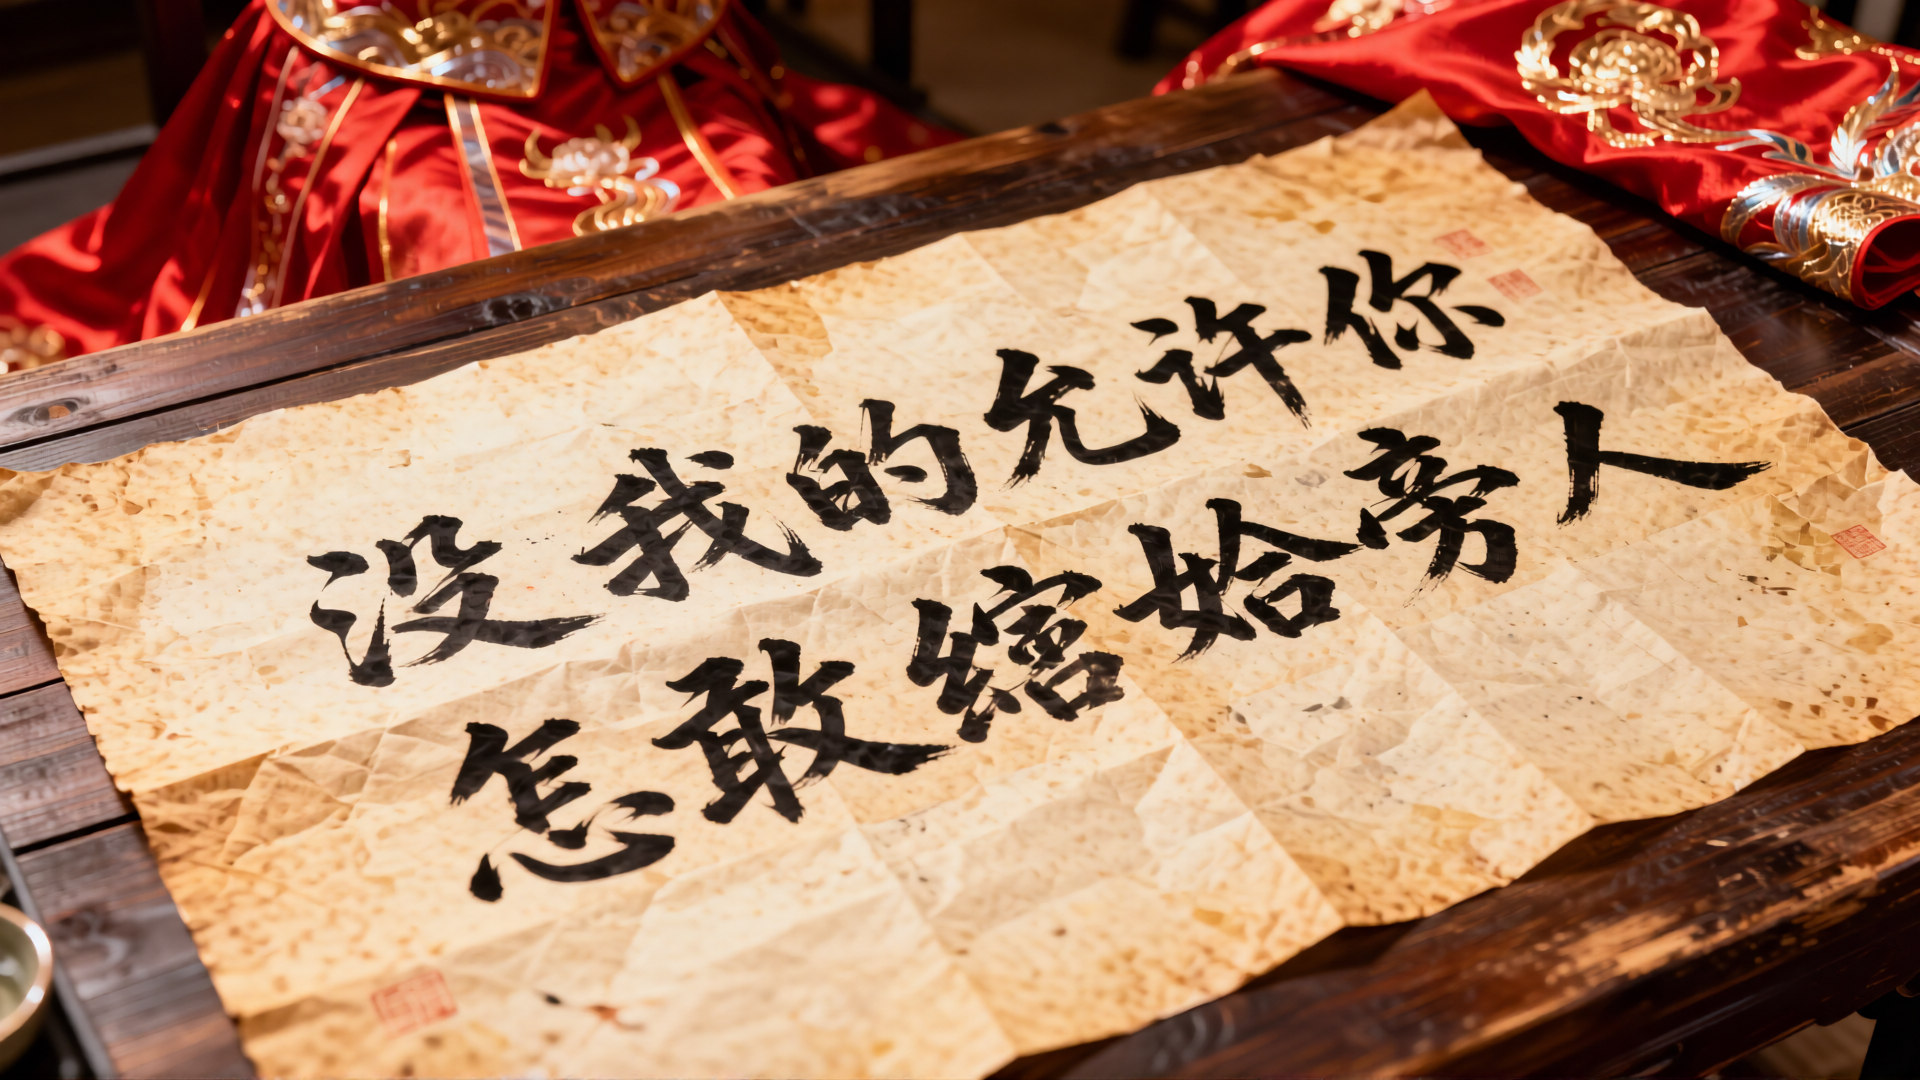 没我的允许你
怎敢姶旁人